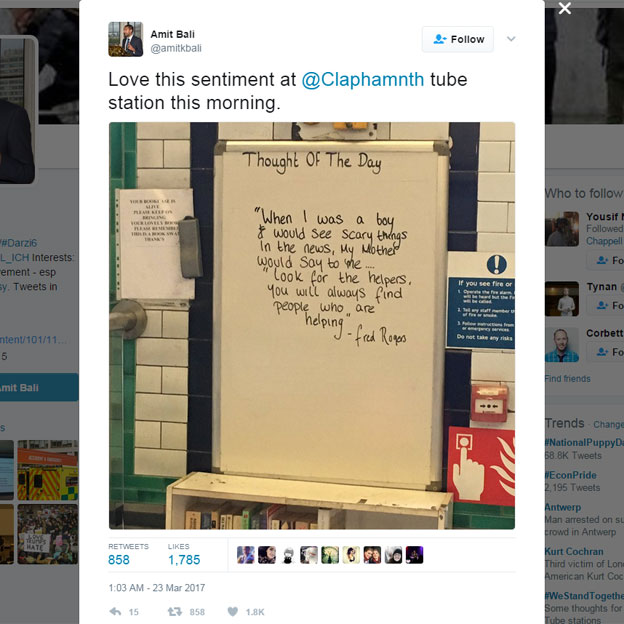 Amit Bali
@amitkbali
Follow
Love this sentiment at @Claphamnth tube
station this morning.
Thought Of The Day
"When I was a boy
& would see scary things
In the news, My Mother
would say to me ....
"Look for the helpers,
you will always find
people who are
helping"
- Fred Rogers
YOUR BOOKCASE IS
ALIVE
PLEASE KEEP ON
BRINGING
YOUR LOVELY BOOKS
PLEASE REMEMBER
THIS IS A BOOK SWAP
THANK'S
If you see fire or
1 Operate the fire alarm.
will be heard but the
will be called.
2 Tell any staff member
of fire or smoke.
3 Follow instructions from
or emergency services.
Do not take any risks
RETWEETS
858
LIKES
1,785
1:03 AM - 23 Mar 2017
15
858
1.8K
/#Darzi6
L_ICH Interests:
vement - esp
sy. Tweets in
ntent/101/11...
5
mit Bali
s
Who to follow
Yousif
Followed
Chappell
Fo
Tynan
Fo
Corbett
Fo
Find friends
Trends · Change
#NationalPuppyDa
68.8K Tweets
#EconPride
2,195 Tweets
Antwerp
Man arrested on su
crowd in Antwerp
Kurt Cochran
Third victim of Lon
American Kurt Coc
#WeStandTogethe
Some thoughts for
Tube stations